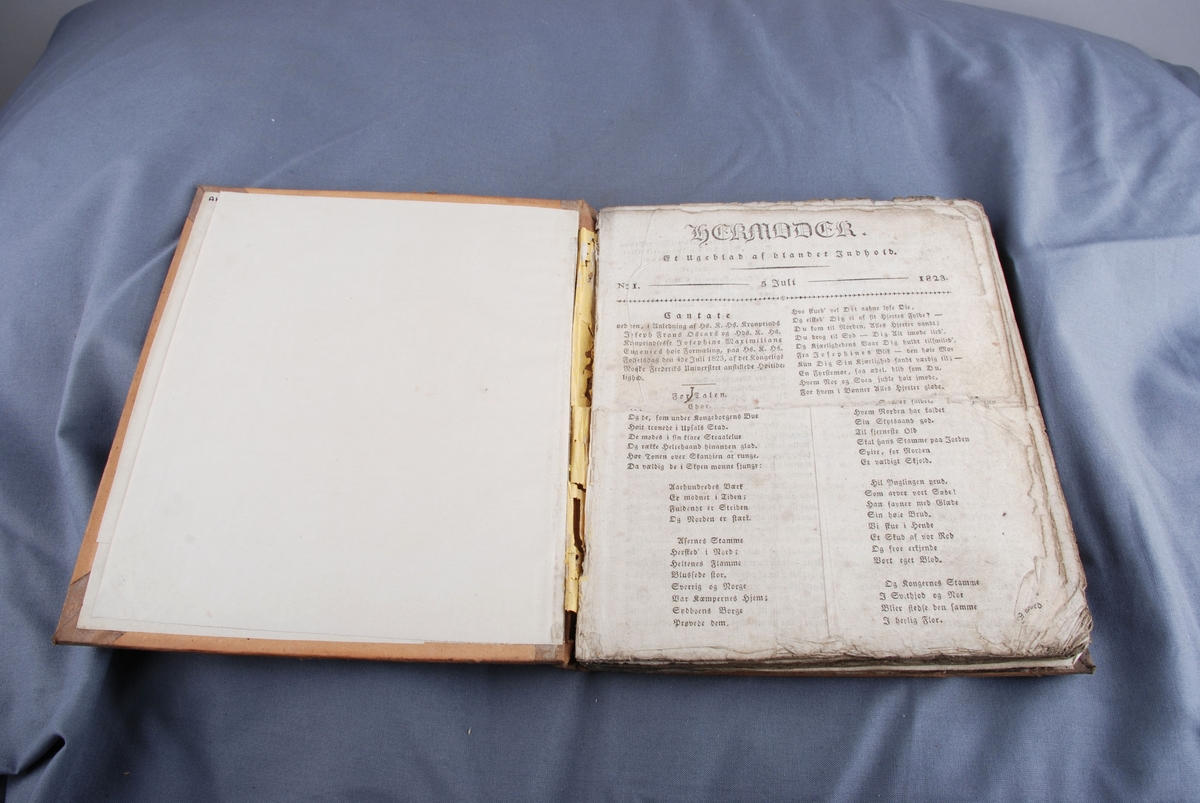 HERMODER.
Et Ugeblad af blandet Indhold.
No 1. 5 Juli 1823.
Cantate
ved den, i Anledning af Hs. K. Hs. Kronprinds
Joseph Frans Oscars og Hds. K. Hs.
Kronprindsesse Josephine Maximiliane
Eugenies høie Formæling, paa Hs. K. Hs.
Fødselsdag den 4de Juli 1823, af det Kongelige
Norske Frederiks Universitet anstillede Høitide-
lighed.
For Talen.
Chor.
Og de, som under Kongeborgens Bue
Høit tronede i Upsals Stad.
De mødes i sin klare Straalelue
Og række Heltehaand hinanden glad.
Hør Tonen over Skandien at runge.
Da vældig de i Skyen monne sjunge:
Aarhundredes Værk
Er modnet i Tiden;
Fuldendt er Striden
Og Norden er stærk.
Asernes Stamme
Hersked' i Nord;
Heltenes Flamme
Blussede stor.
Sverrig og Norge
Var Kæmpernes Hjem;
Sydboens Borge
Prøvede dem.
Hvo skued' vel Dit aabne lyse Øie,
Og elsked' Dig ei af sit Hjertes Fylde? —
Du kom til Norden, Alles Hjerter vandt;
Du drog til Syd — Dig Alt imøde lied',
Og Kjærlighedens Baar Dig huldt tilsmiled',
Fra Josephines Blik — den høie Mø
Kun Dig Sin Kjærlighed fandt værdig til; —
En Fyrstemøe, saa ædel, blid som Du.
Hvem Nor og Svea juble høit imøde,
For hvem i Bønner Alles Hjerter gløde.
Hvem Norden har kaldet
Sin Skytsaand god.
Til fjerneste Old
Skal hans Stamme paa Jorden
Spire, for Norden
Et vældigt Skjold.
Hil Ynglingen prud,
Som arver vort Sæde!
Han favner med Glæde
Sin høie Brud.
Vi skue i Hende
Et Skud af vor Rod
Og froe erkjende
Vort eget Blod.
Og Kongernes Stamme
I Svithjod og Nor
Blier stedse den samme
I herlig Flor.